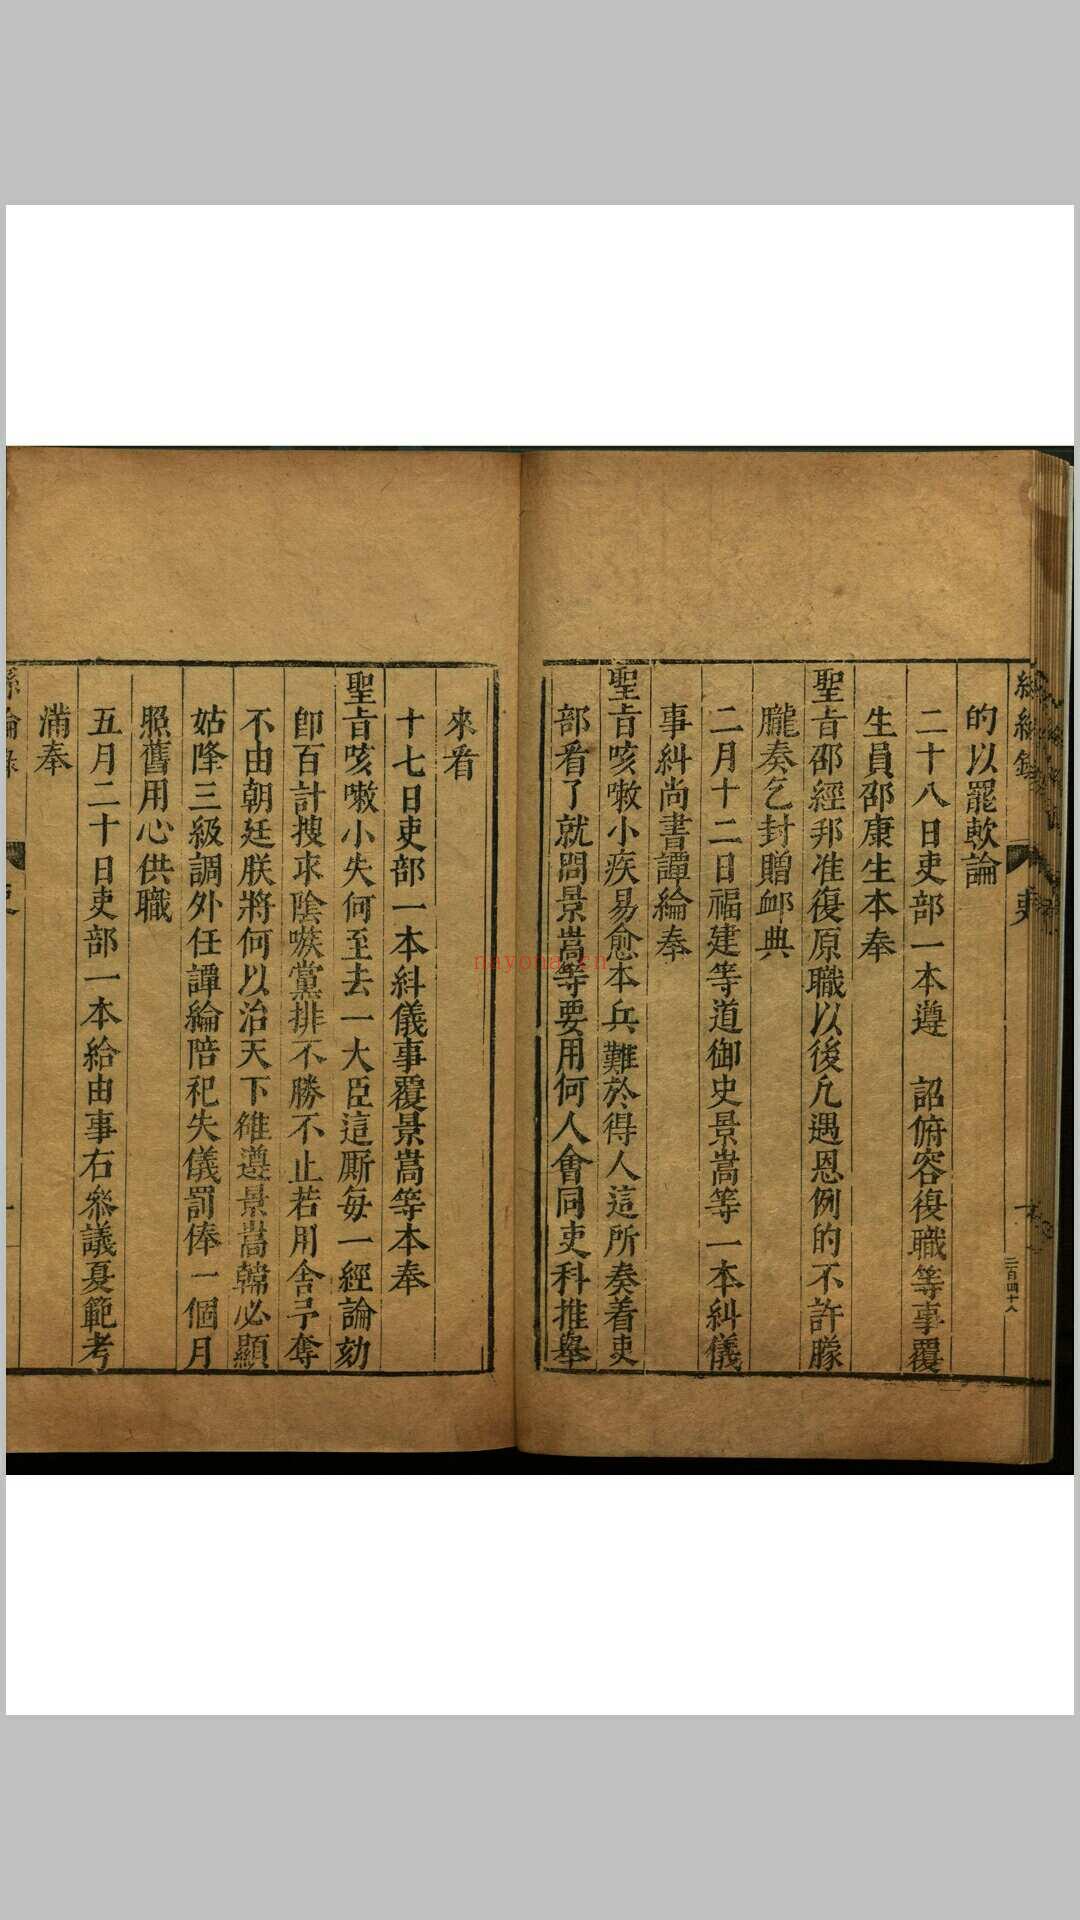 絲綸錄
吏
二百四十八
的以罷軟論
二十八日吏部一本遵　詔俯容復職等事覆
生員邵康生本奉
聖旨邵經邦准復原職以後凡遇恩例的不許朦
朧奏乞封贈卹典
二月十二日福建等道御史景嵩等一本糾儀
事糾尚書譚綸奉
聖旨咳嗽小疾易愈本兵難於得人這所奏着吏
部看了就問景嵩等要用何人會同吏科推舉
來看
十七日吏部一本糾儀事覆景嵩等本奉
聖旨咳嗽小失何至去一大臣這厮每一經論劾
卽百計搜求陰嗾黨排不勝不止若用舍予奪
不由朝廷朕將何以治天下雒遵景嵩韓必顯
姑降三級調外任譚綸陪祀失儀罰俸一個月
照舊用心供職
五月二十日吏部一本給由事右叅議夏範考
滿奉
nayona.cn